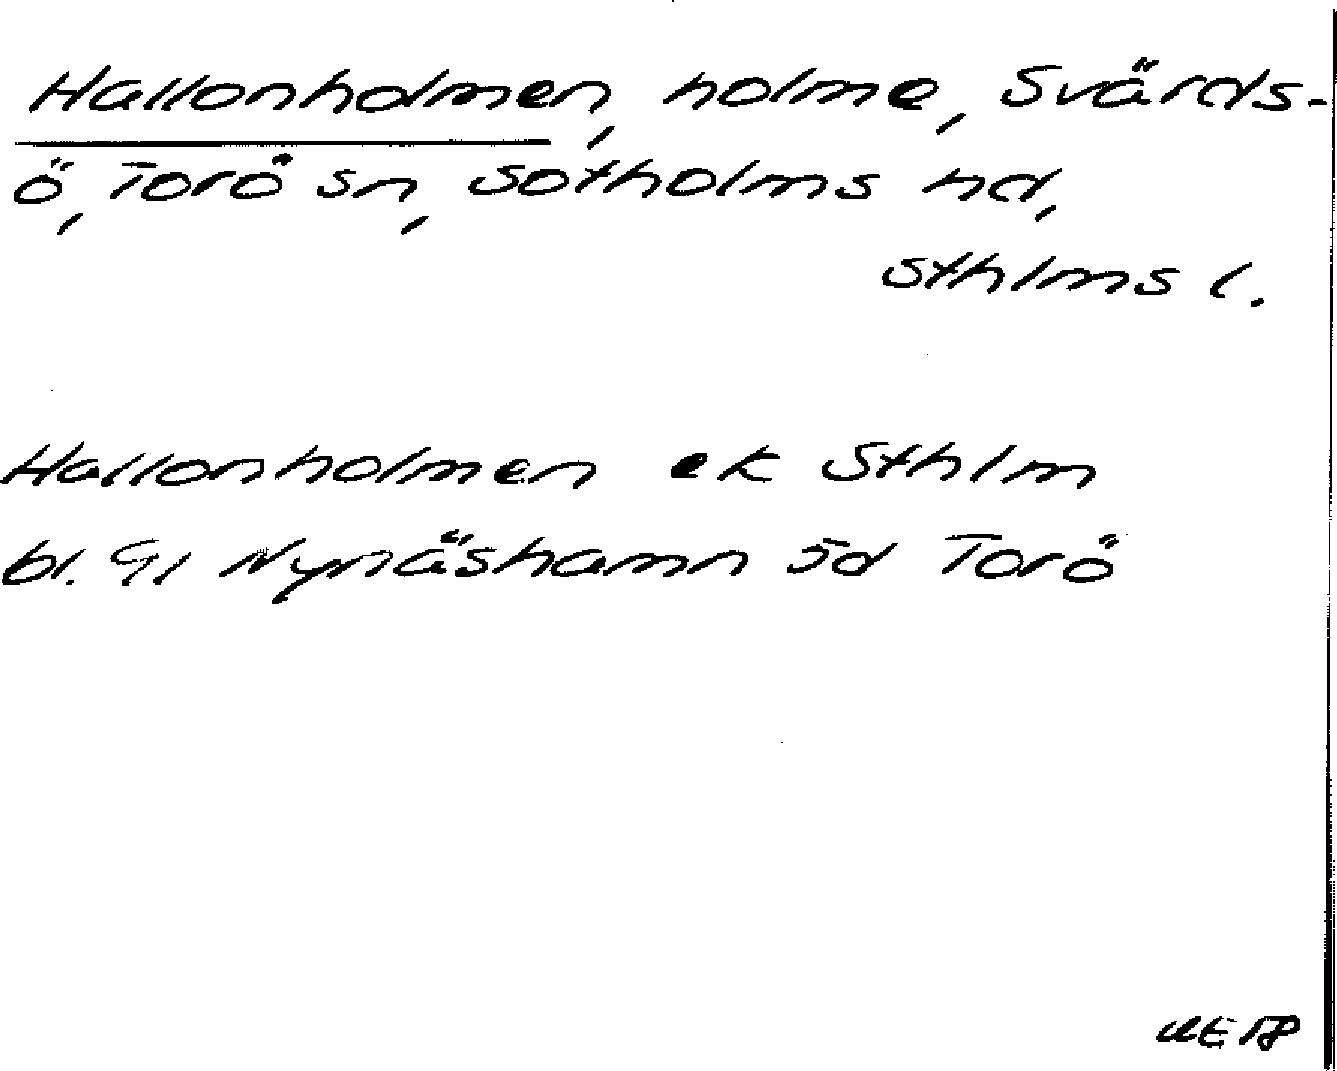 Hallonholmen, holme, Svärds-
ö, Torö sn, Sotholms hd,
Sthlms l.
Hallonholmen ek Sthlm
bl. 91 Nynäshamn Jd Torö